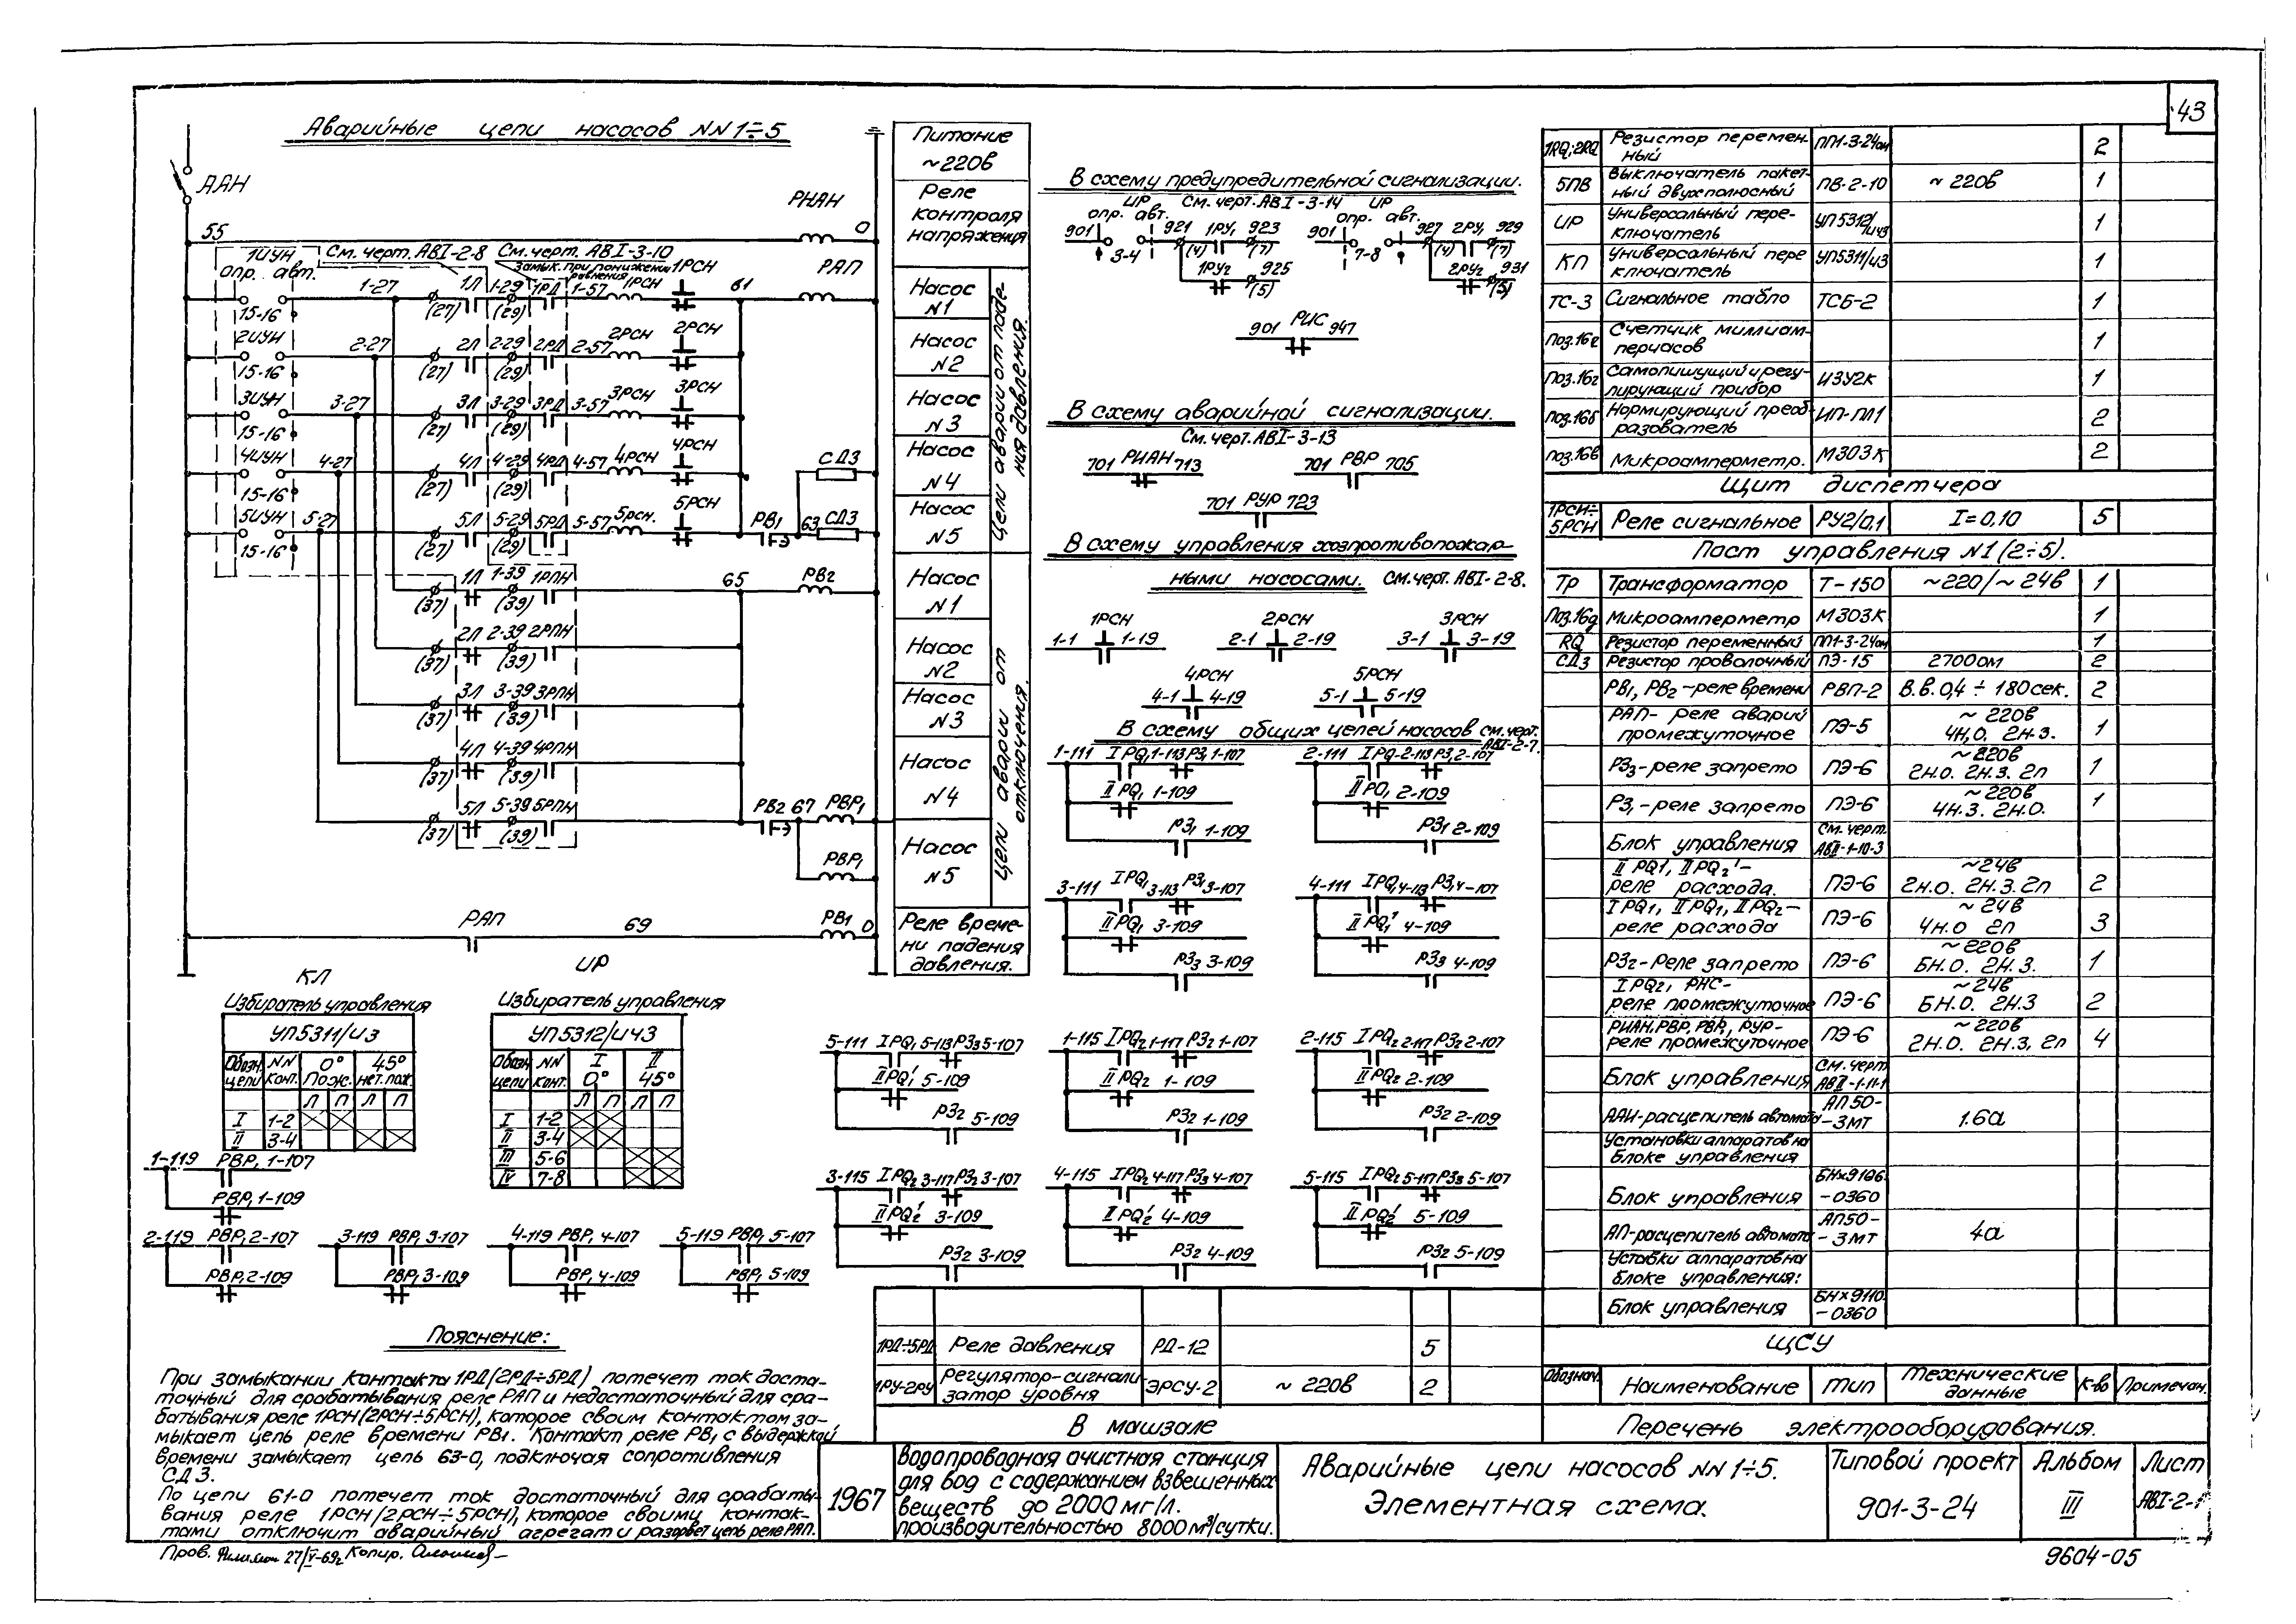 43
Аварийные цепи насосов NN 1÷5
ААН
55
РНАН
0
1ИУН
См. черт. АВІ-2-8
См. черт. АВІ-3-10
опр. авт.
Замык. при понижении
1РСН
РАП
1-27
1Л 1-29 1РД 1-57 1РСН
61
15-16
(27) (29)
2ИУН
2-27
2Л 2-29 2РД 2-57 2РСН
2РСН
15-16
(27) (29)
3ИУН
3-27
3Л 3-29 3РД 3-57 3РСН
3РСН
15-16
(27) (29)
4ИУН
4-27
4Л 4-29 4РД 4-57 4РСН
4РСН
СДЗ
15-16
(27) (29)
5ИУН
5-27
5Л 5-29 5РД 5-57 5РСН.
5РСН
РВ1
63
СДЗ
15-16
(27) (29)
1Л 1-39 1РПН
65
РВ2
(37) (39)
2Л 2-39 2РПН
(37) (39)
3Л 3-39 3РПН
(37) (39)
4Л 4-39 4РПН
(37) (39)
5Л 5-39 5РПН
РВ2 67 РВР1
(37) (39)
РВР1
РАП
69
РВ1
0
Питание
~220в
Реле
контроля
напряжения
Насос
N1
Насос
N2
Насос
N3
Насос
N4
Насос
N5
Цепи аварии от паде-
ния давления.
Насос
N1
Насос
N2
Насос
N3
Насос
N4
Насос
N5
Цепи аварии от
отключения.
Реле време-
ни падения
давления.
КЛ
Избиратель управления
УП5311/И3
Обозн. цепи
NN конт.
0° 45°
Пож. нет. пож.
Л П Л П
I 1-2
II 3-4
ИР
Избиратель управления
УП5312/И43
Обозн. цепи
NN конт.
I II
0° 45°
Л П Л П
I 1-2
II 3-4
III 5-6
IV 7-8
1-119 РВР1 1-107
РВР1 1-109
2-119 РВР1 2-107
РВР1 2-109
3-119 РВР1 3-107
РВР1 3-109
4-119 РВР1 4-107
РВР1 4-109
5-119 РВР1 5-107
РВР1 5-109
Пояснение:
При замыкании контакта 1РД(2РД÷5РД) потечет ток доста-
точный для срабатывания реле РАП и недостаточный для сра-
батывания реле 1РСН(2РСН÷5РСН), которое своим контактом за-
мыкает цепь реле времени РВ1. Контакт реле РВ1 с выдержкой
времени замыкает цепь 63-0, подключая сопротивления
СДЗ.
По цепи 61-0 потечет ток достаточный для срабаты-
вания реле 1РСН(2РСН÷5РСН), которое своими контак-
тами отключит аварийный агрегат и разорвет цепь реле РАП.
В схему предупредительной сигнализации.
См. черт. АВІ-3-14
ИР
опр. авт.
901 921 1РУ1 923
3-4 (4) (7)
1РУ2 925
(5)
ИР
опр. авт.
901 927 2РУ1 929
7-8 (4) (7)
2РУ2 931
(5)
901 РИС 947
В схему аварийной сигнализации.
См. черт. АВІ-3-13
701 РИАН 713
701 РВР 705
701 РУР 723
В схему управления хозпротивопожар-
ными насосами. См. черт. АВІ-2-8.
1РСН
1-1 1-19
2РСН
2-1 2-19
3РСН
3-1 3-19
4РСН
4-1 4-19
5РСН
5-1 5-19
В схему общих цепей насосов см. черт.
АВІ-2-7.
1-111 IPQ1 1-113 РЗ1 1-107
IIPQ1 1-109
РЗ1 1-109
2-111 IPQ 2-113 РЗ1 2-107
IIPQ1 2-109
РЗ1 2-109
3-111 IPQ1 3-113 РЗ1 3-107
IIPQ1 3-109
РЗ3 3-109
4-111 IPQ1 4-113 РЗ1 4-107
IIPQ1' 4-109
РЗ3 4-109
5-111 IPQ1 5-113 РЗ3 5-107
IIPQ1' 5-109
РЗ2 5-109
1-115 IPQ2 1-117 РЗ2 1-107
IIPQ2 1-109
РЗ2 1-109
2-115 IPQ2 2-117 РЗ2 2-107
IIPQ2 2-109
РЗ2 2-109
3-115 IPQ2 3-117 РЗ2 3-107
IIPQ2' 3-109
РЗ2 3-109
4-115 IPQ2 4-117 РЗ3 4-107
IPQ2' 4-109
РЗ2 4-109
5-115 IPQ2 5-117 РЗ3 5-107
IIPQ2' 5-109
РЗ2 5-109
1RQ;2RQ Резистор перемен-ный ПП1-3-24ом 2
5ПВ Выключатель пакет-ный двухполюсный ПВ-2-10 ~220в 1
ИР Универсальный пере-ключатель УП5312/И43 1
КП Универсальный пере ключатель УП5311/И3 1
ТС-3 Сигнальное табло ТСБ-2 1
Поз.16е Счетчик миллиам-перчасов 1
Поз.16г Самопишущий и регу-лирующий прибор ИЗУ2К 1
Поз.16б Нормирующий преоб-разователь ИП-ПЛ1 2
Поз.16в Микроамперметр. М303К 2
Щит диспетчера
1РСН÷5РСН Реле сигнальное РУ2/0,1 I=0,10 5
Пост управления N1(2÷5).
Тр Трансформатор Т-150 ~220/~24в 1
Поз.16д Микроамперметр М303К 1
RQ Резистор переменный ПП1-3-24ом 1
СДЗ Резистор проволочный ПЭ-15 2700ом 2
РВ1, РВ2-реле времени РВП-2 В.в. 0,4÷180сек. 2
РАП- реле аварий промежуточное ПЭ-5 ~220в 4Н.О. 2Н.З. 1
РЗ3-реле запрето ПЭ-6 ~220в 2Н.О. 2Н.З. 2п 1
РЗ1-реле запрето ПЭ-6 ~220в 4Н.З. 2Н.О. 1
Блок управления См. черт. АВІІ-1-10-3
IIPQ1, IIPQ2'- реле расхода. ПЭ-6 ~24в 2Н.О. 2Н.З. 2п 2
IPQ1, IIPQ1, IIPQ2- реле расхода ПЭ-6 ~24в 4Н.О 2п 3
РЗ2-реле запрето ПЭ-6 ~220в БН.О. 2Н.З. 1
IPQ2, РНС- реле промежуточное ПЭ-6 ~24в БН.О. 2Н.З 2
РИАН, РВР, РВР1, РУР- реле промежуточное ПЭ-6 ~220в 2Н.О. 2Н.З, 2п 4
Блок управления См. черт АВІІ-1-11-1
ААН-расцепитель автомата АП50-3МТ 1.6а
Установки аппаратов на Блоке управления
Блок управления БНх9126-0360
АП-расцепитель автомата АП50-3МТ 4а
Уставки аппаратов на блоке управления:
Блок управления БНх9110-0360
ЩСУ
Обознач. Наименование Тип Технические данные К-во Примечан.
Перечень электрооборудования.
1РД÷5РД Реле давления РД-12 5
1РУ-2РУ Регулятор-сигнали-затор уровня ЭРСУ-2 ~220в 2
В машзале
1967
Водопроводная очистная станция
для вод с содержанием взвешенных
веществ до 2000мг/л.
производительностью 8000м³/сутки.
Аварийные цепи насосов NN 1÷5.
Элементная схема.
Типовой проект
901-3-24
Альбом
III
Лист
АВІ-2-
Пров. 27/V-69г Копир.
9604-05